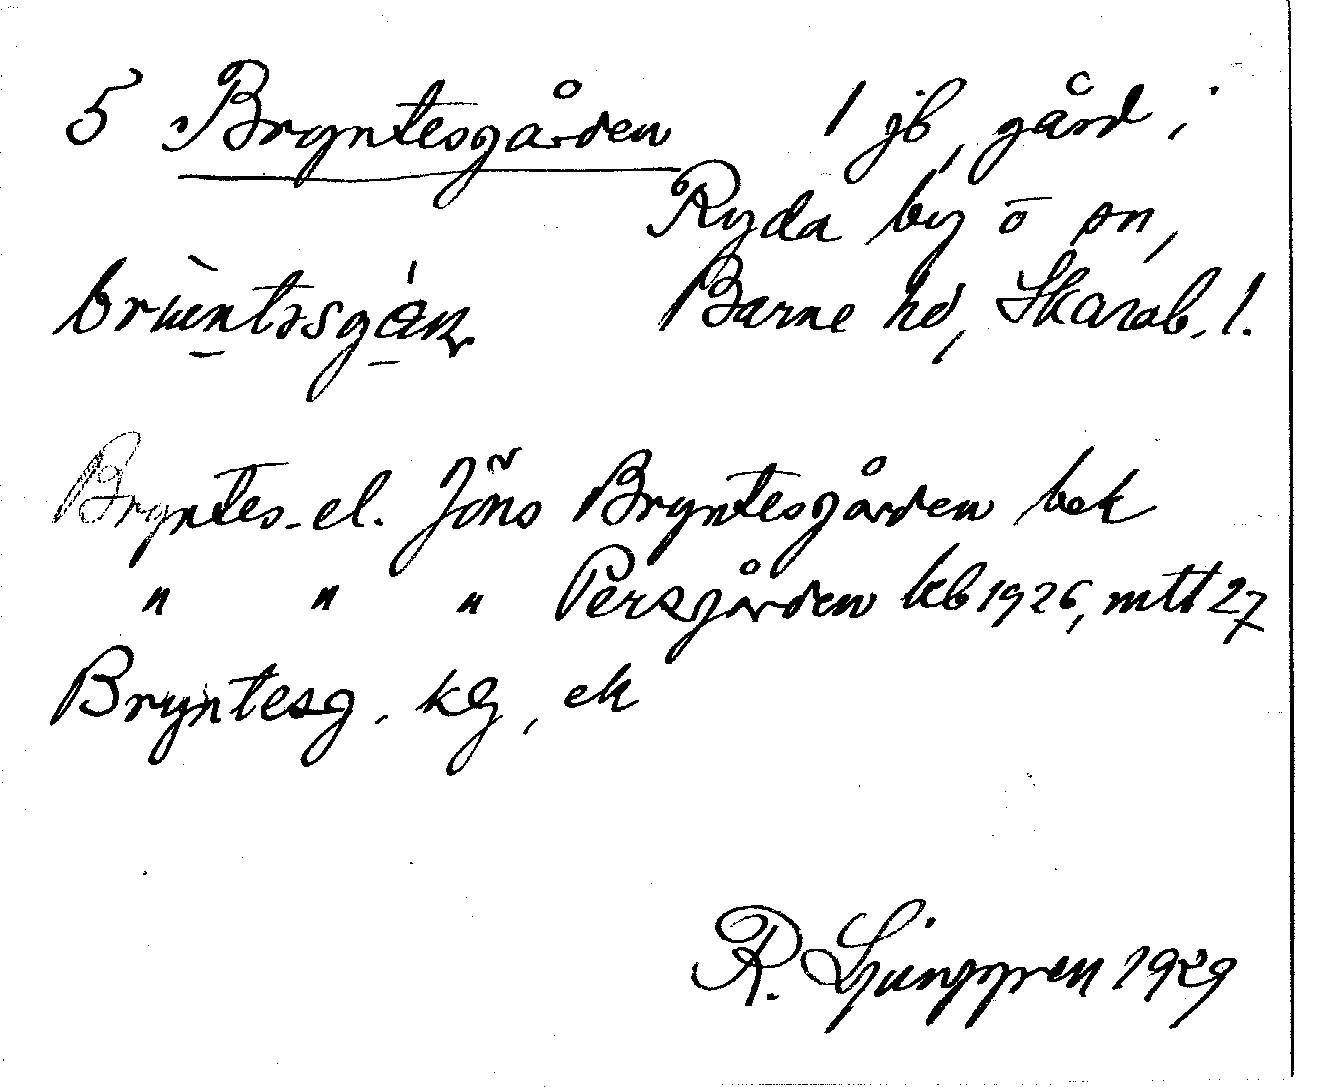 5 Bryntesgården 1 jb, gård i
Ryda by o sn,
Barne hd, Skarab. l.
Bryntes- el. Jöns Bryntesgården bek
" " " Persgården kb 1926, mtl 27
Bryntesg. kg, ek
R. Ljunggren 1929